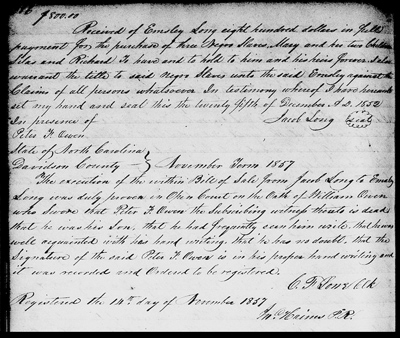 $800.00
Received of Emsley Long eight hundred dollars in full
payment for the purchase of three Negro Slaves, Mary and her two Children
Silas and Richard To have and to hold to him and his heirs forever. I also
warrant the title to said Negro Slaves unto the said Emsley against the
Claims of all persons whatsoever In testimony whereof I have hereunto
set my hand and seal this the twenty fifth of December A.D. 1852
In presence of Jacob Long (seal)
Peter F. Owen
State of North Carolina
Davidson County } November Term 1857
The execution of the within Bill of Sale from Jacob Long to Emsley
Long was duly proven in Open Court on the Oath of William Owen
who swore that Peter F. Owen the Subscribing witness thereto is dead
that he was his Son, that he had frequently seen him write that he was
well acquainted with his hand writing, that he has no doubt that the
Signature of the said Peter F. Owen is in his proper handwriting and
it was recorded and Ordered to be registered.
C. F. Lowe Clk
Registered the 14th day of November 1857
P.R.